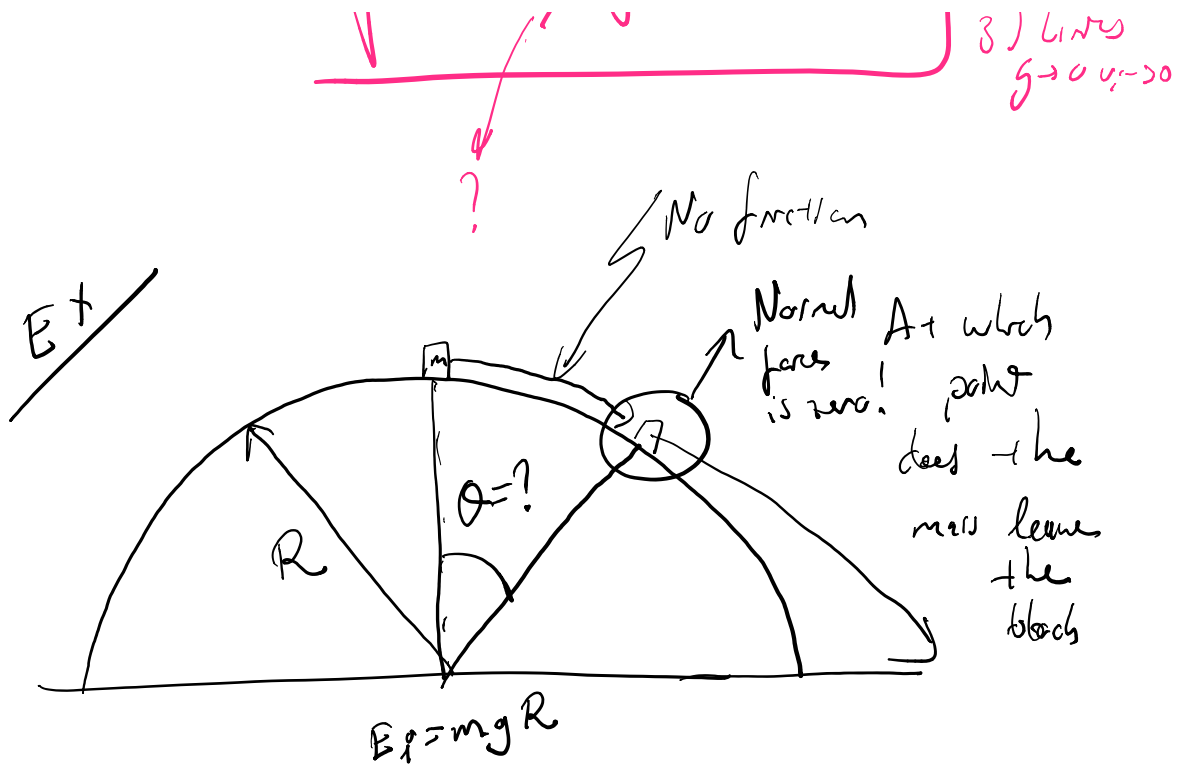 3) LINES
?
No friction
Ex
Normal
force
is zero!
At which
point
does the
mass leave
the
block
m
θ=?
R
Ei=mgR